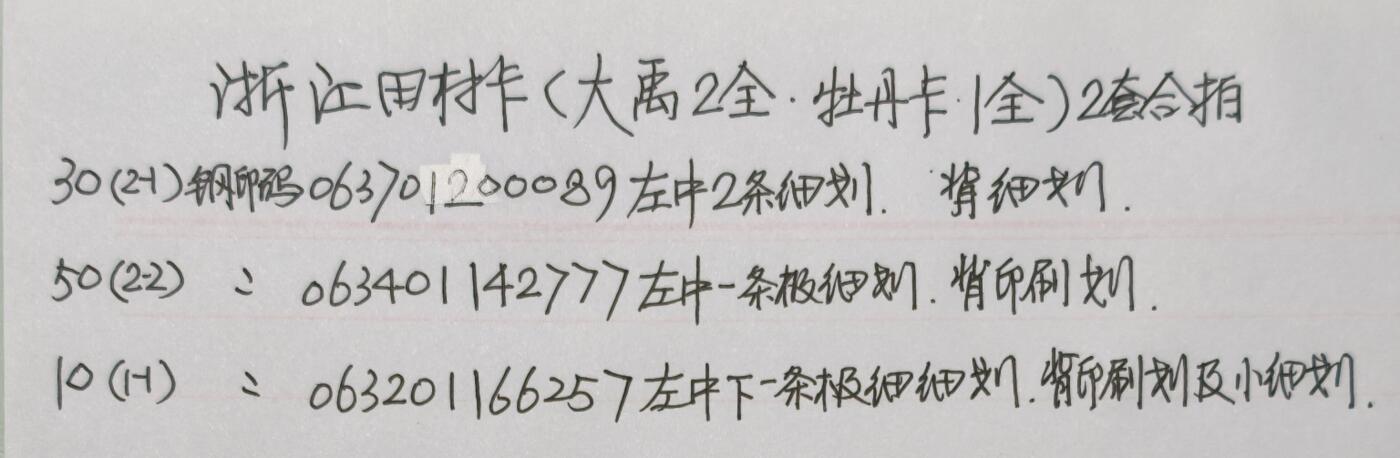 浙江田村卡(大禹2全·牡丹卡1全)2套合拍
30(2-1)钢印码063701200089左中2条细划.背细划.
50(2-2) 〃 063401142777左中一条极细划.背印刷划.
10(1-1) 〃 063201166257左中下一条极细细划.背印刷划及小细划.